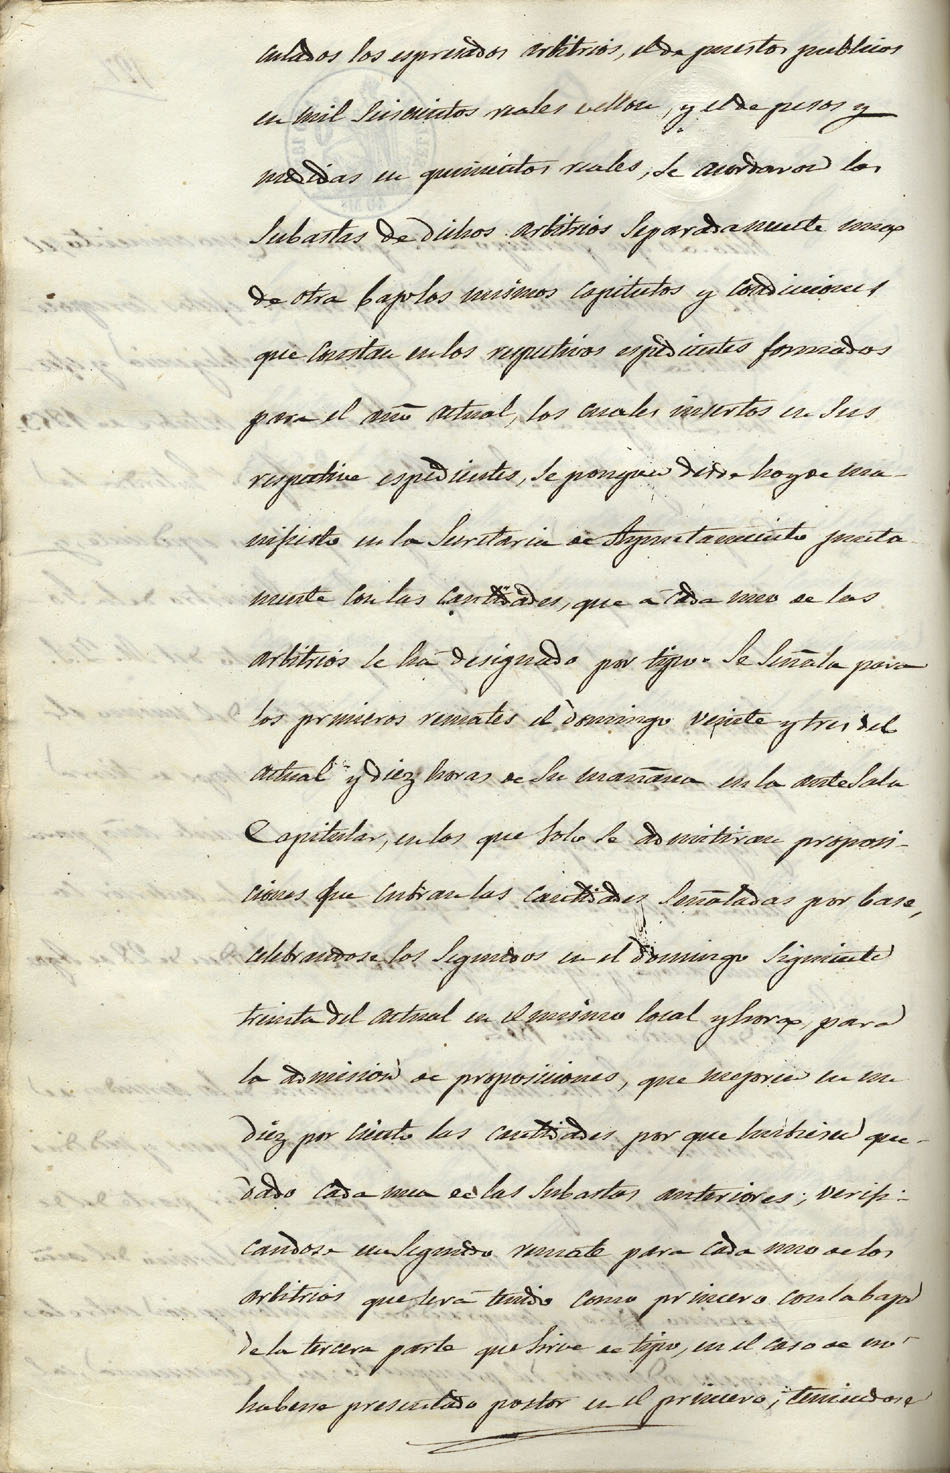 culados los espresados arbitrios, el de puestos publicos
en mil seiscientos reales vellon, y el de pesos y
medidas en quinientos reales, se acordaron las
Subastas de dichos arbitrios separadamente una
de otra bajo los mismos capitulos y condiciones
que constan en los respectivos espedientes formados
para el año actual, los cuales insertos en sus
respective espedientes, se pongan desde hoy de ma-
nifiesto en la Secretaria de Ayuntamiento junta
mente con las cantidades, que á cada uno de los
arbitrios se há designado por tipo. Se señala para
los primeros remates el domingo veinte y tres del
actual y diez horas de su mañana en la ante Sala
Capitular, en los que solo se admitiran proposi-
ciones que cubran las cantidades señaladas por base,
celebrandose los segundos en el domingo siguiente
treinta del actual en el mismo local y hora, para
la admision de proposiciones, que mejoren en un
diez por ciento las cantidades por que hubiesen que-
dado cada una de las subastas anteriores; verifi-
candose un segundo remate para cada uno de los
arbitrios que será tenido como primero con la baja
de la tercera parte que sirve de tipo, en el caso de no
haberse presentado postor en el primero; teniendose